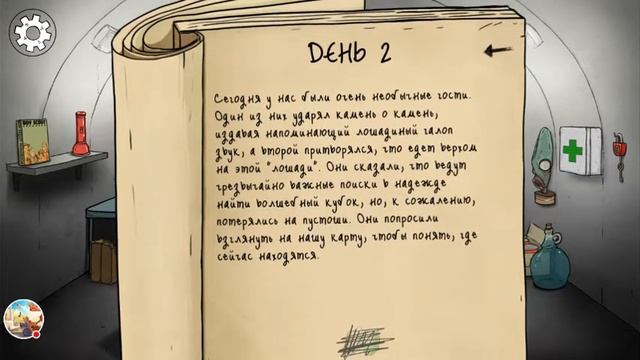 День 2
Сегодня у нас были очень необычные гости.
Один из них ударял камень о камень,
издавая напоминающий лошадиный галоп
звук, а второй притворялся, что едет верхом
на этой "лошади". Они сказали, что ведут
чрезвычайно важные поиски в надежде
найти волшебный кубок, но, к сожалению,
потерялись на пустоши. Они попросили
взглянуть на нашу карту, чтобы понять, где
сейчас находятся.